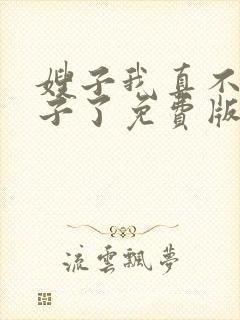 嫂子我真不
子了免費版
流雲飄夢